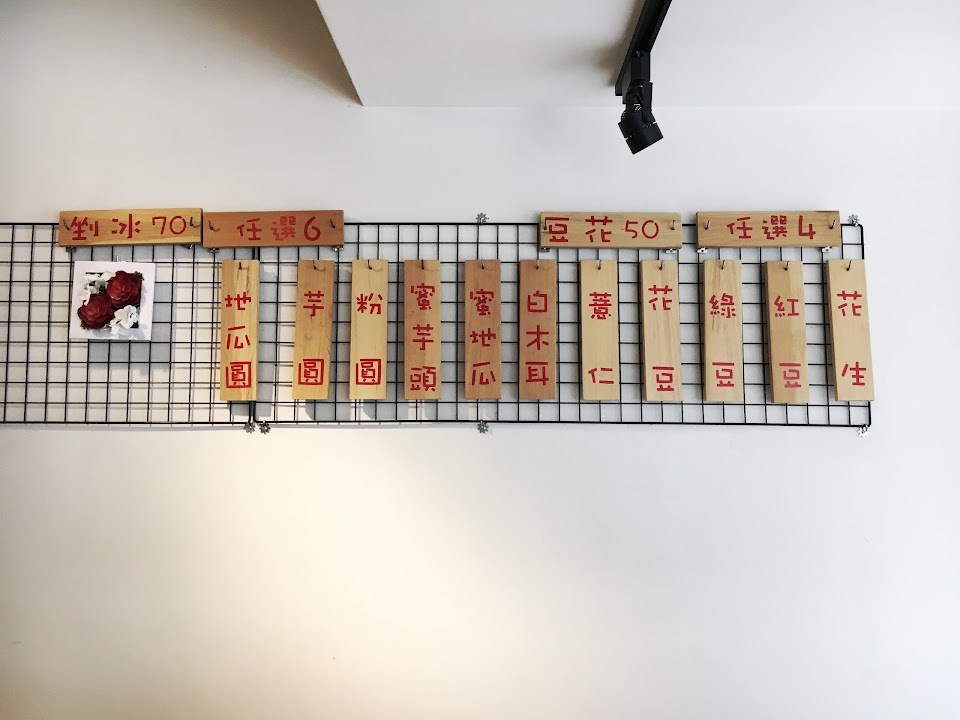 剉冰70
任選6
豆花50
任選4
地瓜圓
芋圓
粉圓
蜜芋頭
蜜地瓜
白木耳
薏仁
花豆
綠豆
紅豆
花生